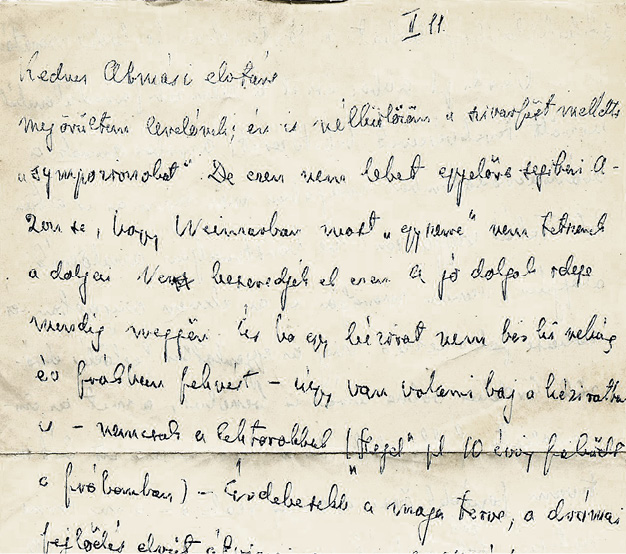 II 11.
Kedves Almási elvtárs
megörültem levelének; én is nélkülözöm a szivarfüst melletti
„symposionokat" De ezen nem lehet egyelőre segíteni A-
zon se, hogy Weimarban most „egyszerre" nem tetszenek
a dolgai keseredjék el ezen A jó dolgok ideje
mindig megjön. És ha egy kézirat nem kés ki néhány
év fiókban fekvést – úgy van valami baj a kézirattal
is – nemcsak a lektorokkal („Hegel" pl 10 évig feküdt
a fiókomban) – Érdekesebb a maga terve, a drámai
fejlődés elvét